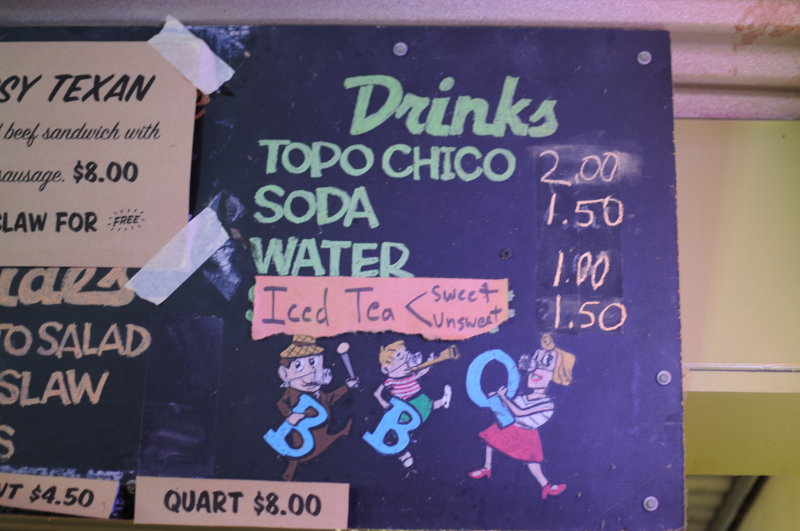 SY TEXAN
beef sandwich with
sausage. $8.00
SLAW FOR FREE
Drinks
TOPO CHICO 2.00
SODA 1.50
WATER 1.00
Iced Tea < Sweet 1.50
Unsweet
TO SALAD
SLAW
S
BBQ
NT $4.50
QUART $8.00